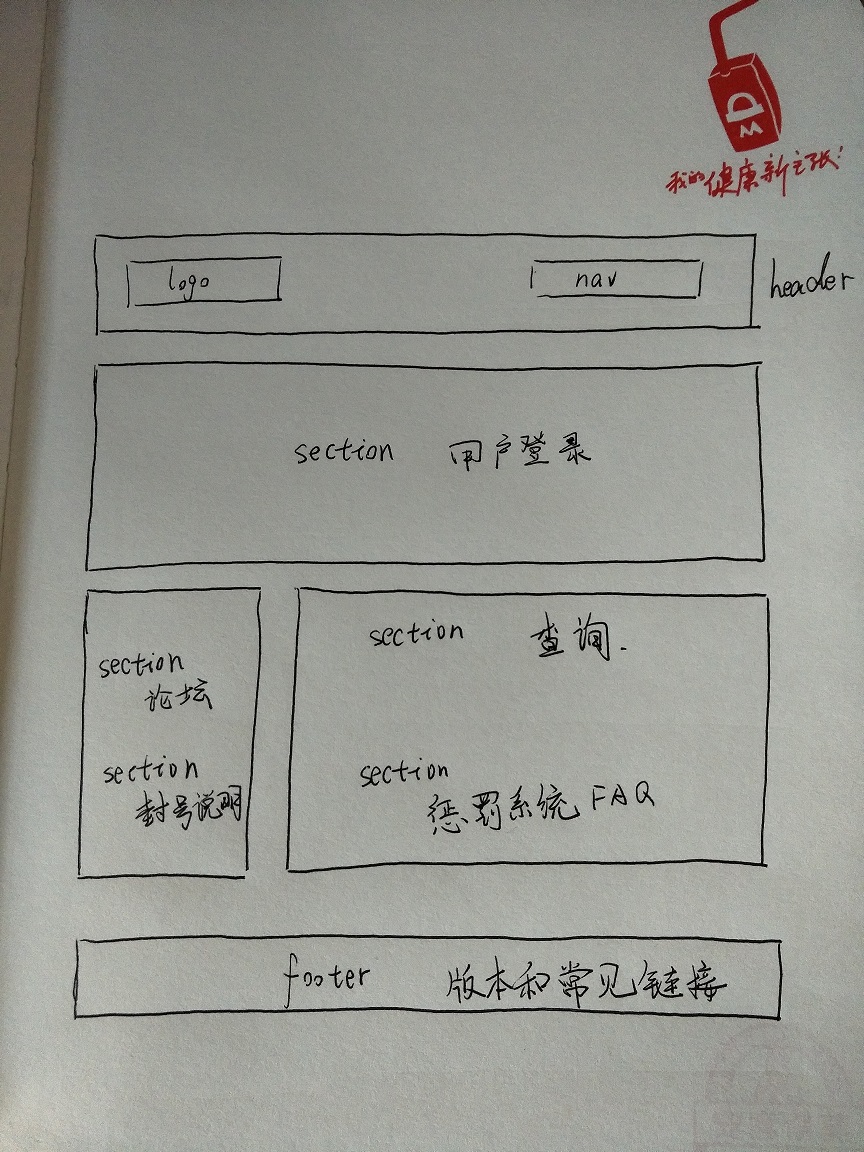 我的健康新主张!
logo
nav
header
section 用户登录
section
论坛
section
封号说明
section 查询.
section
惩罚系统 FAQ
footer 版本和常见链接